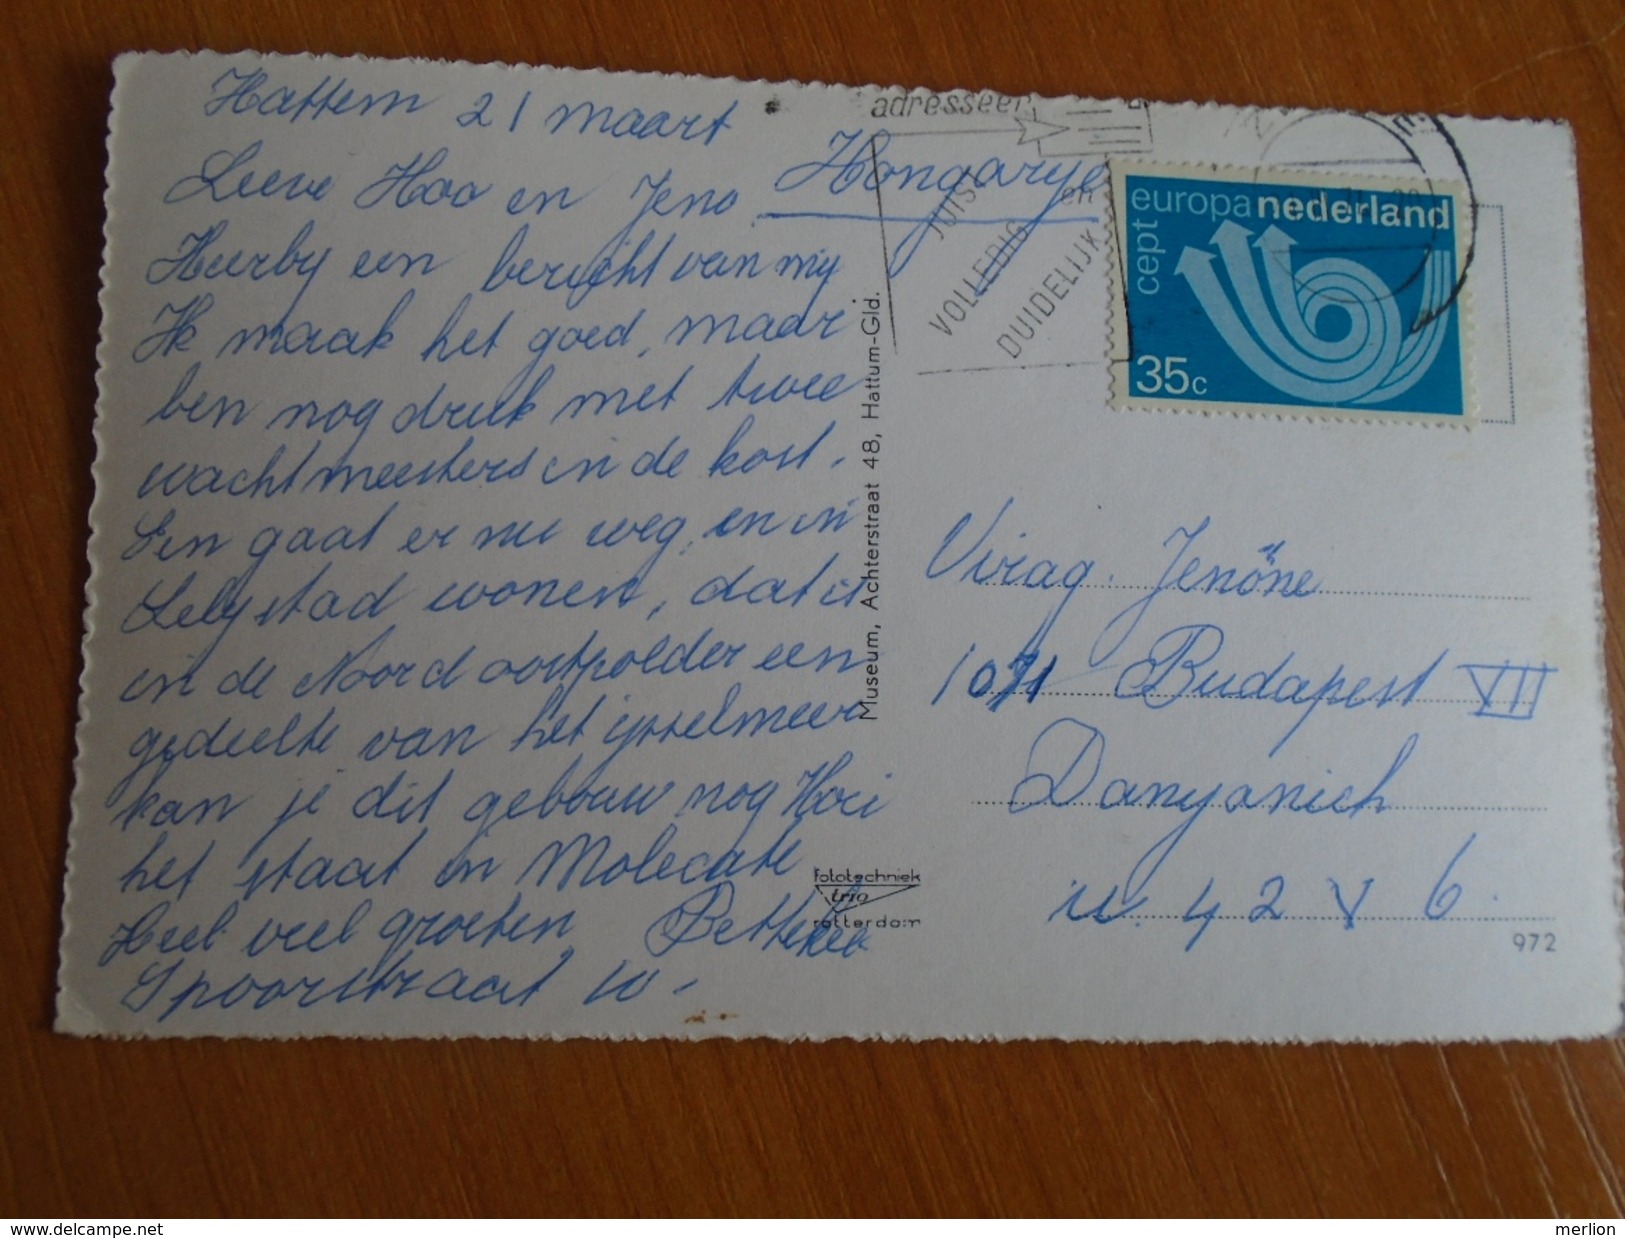 Hattem 21 maart
Lieve Hoa en Jeno
Hierby een bericht van my
Ik maak het goed, maar
ben nog druk met twee
wachtmeesters in de kost.
Een gaat er nu weg, en in
Lelystad wonen, dat is
in de Noord oostpolder een
gedeelte van het ijsselmeer
kan je dit gebouw nog Hoi
het staat in Molecate
Heel veel groeten
Spoorstraat 10-
Museum, Achterstraat 48, Hattum-Gld.
fototechniek
trio
rotterdam
adresseer
JUIST
VOLLEDIG
en
DUIDELIJK
europa nederland
cept
35c
Hongarye
Virag. Jenöne
1071 Budapest VII
Danyanich
u. 42 V 6.
972
www.delcampe.net
merlion